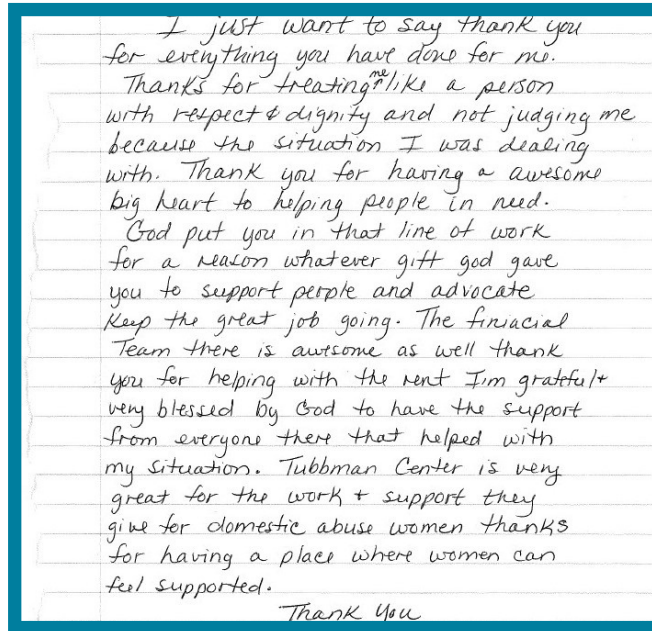 I just want to say thank you
for everything you have done for me.
Thanks for treating me like a person
with respect & dignity and not judging me
because the situation I was dealing
with. Thank you for having a awesome
big heart to helping people in need.
God put you in that line of work
for a reason whatever gift god gave
you to support people and advocate
keep the great job going. The finiacial
Team there is awesome as well thank
you for helping with the rent I'm grateful +
very blessed by God to have the support
from everyone there that helped with
my situation. Tubbman Center is very
great for the work + support they
give for domestic abuse women thanks
for having a place where women can
feel supported.
Thank You